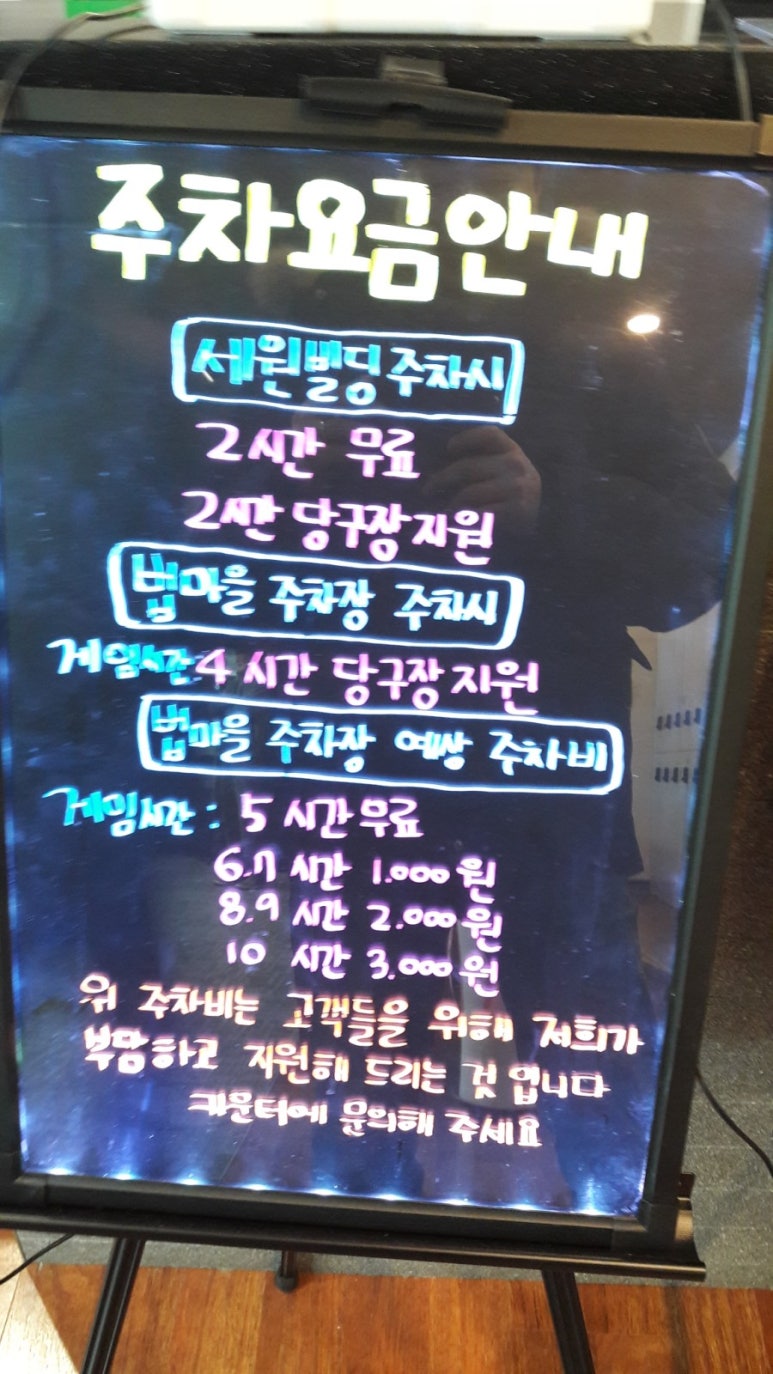 주차요금안내
세원빌딩 주차시
2시간 무료
2시간 당구장 지원
법마을 주차장 주차시
게임시간 4시간 당구장 지원
법마을 주차장 예상 주차비
게임시간 : 5시간 무료
6.7 시간 1.000원
8.9 시간 2.000원
10 시간 3.000원
위 주차비는 고객들을 위해 저희가
부담하고 지원해 드리는 것 입니다
카운터에 문의해 주세요